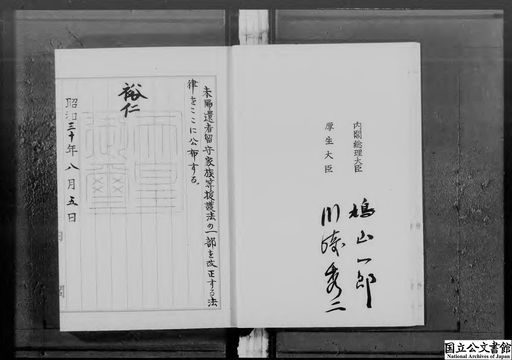 内閣総理大臣 鳩山一郎
厚生大臣 川崎秀二
未帰還者留守家族等援護法の一部を改正する法
律をここに公布する。
裕仁
天皇御璽
昭和三十年八月五日
国立公文書館
National Archives of Japan